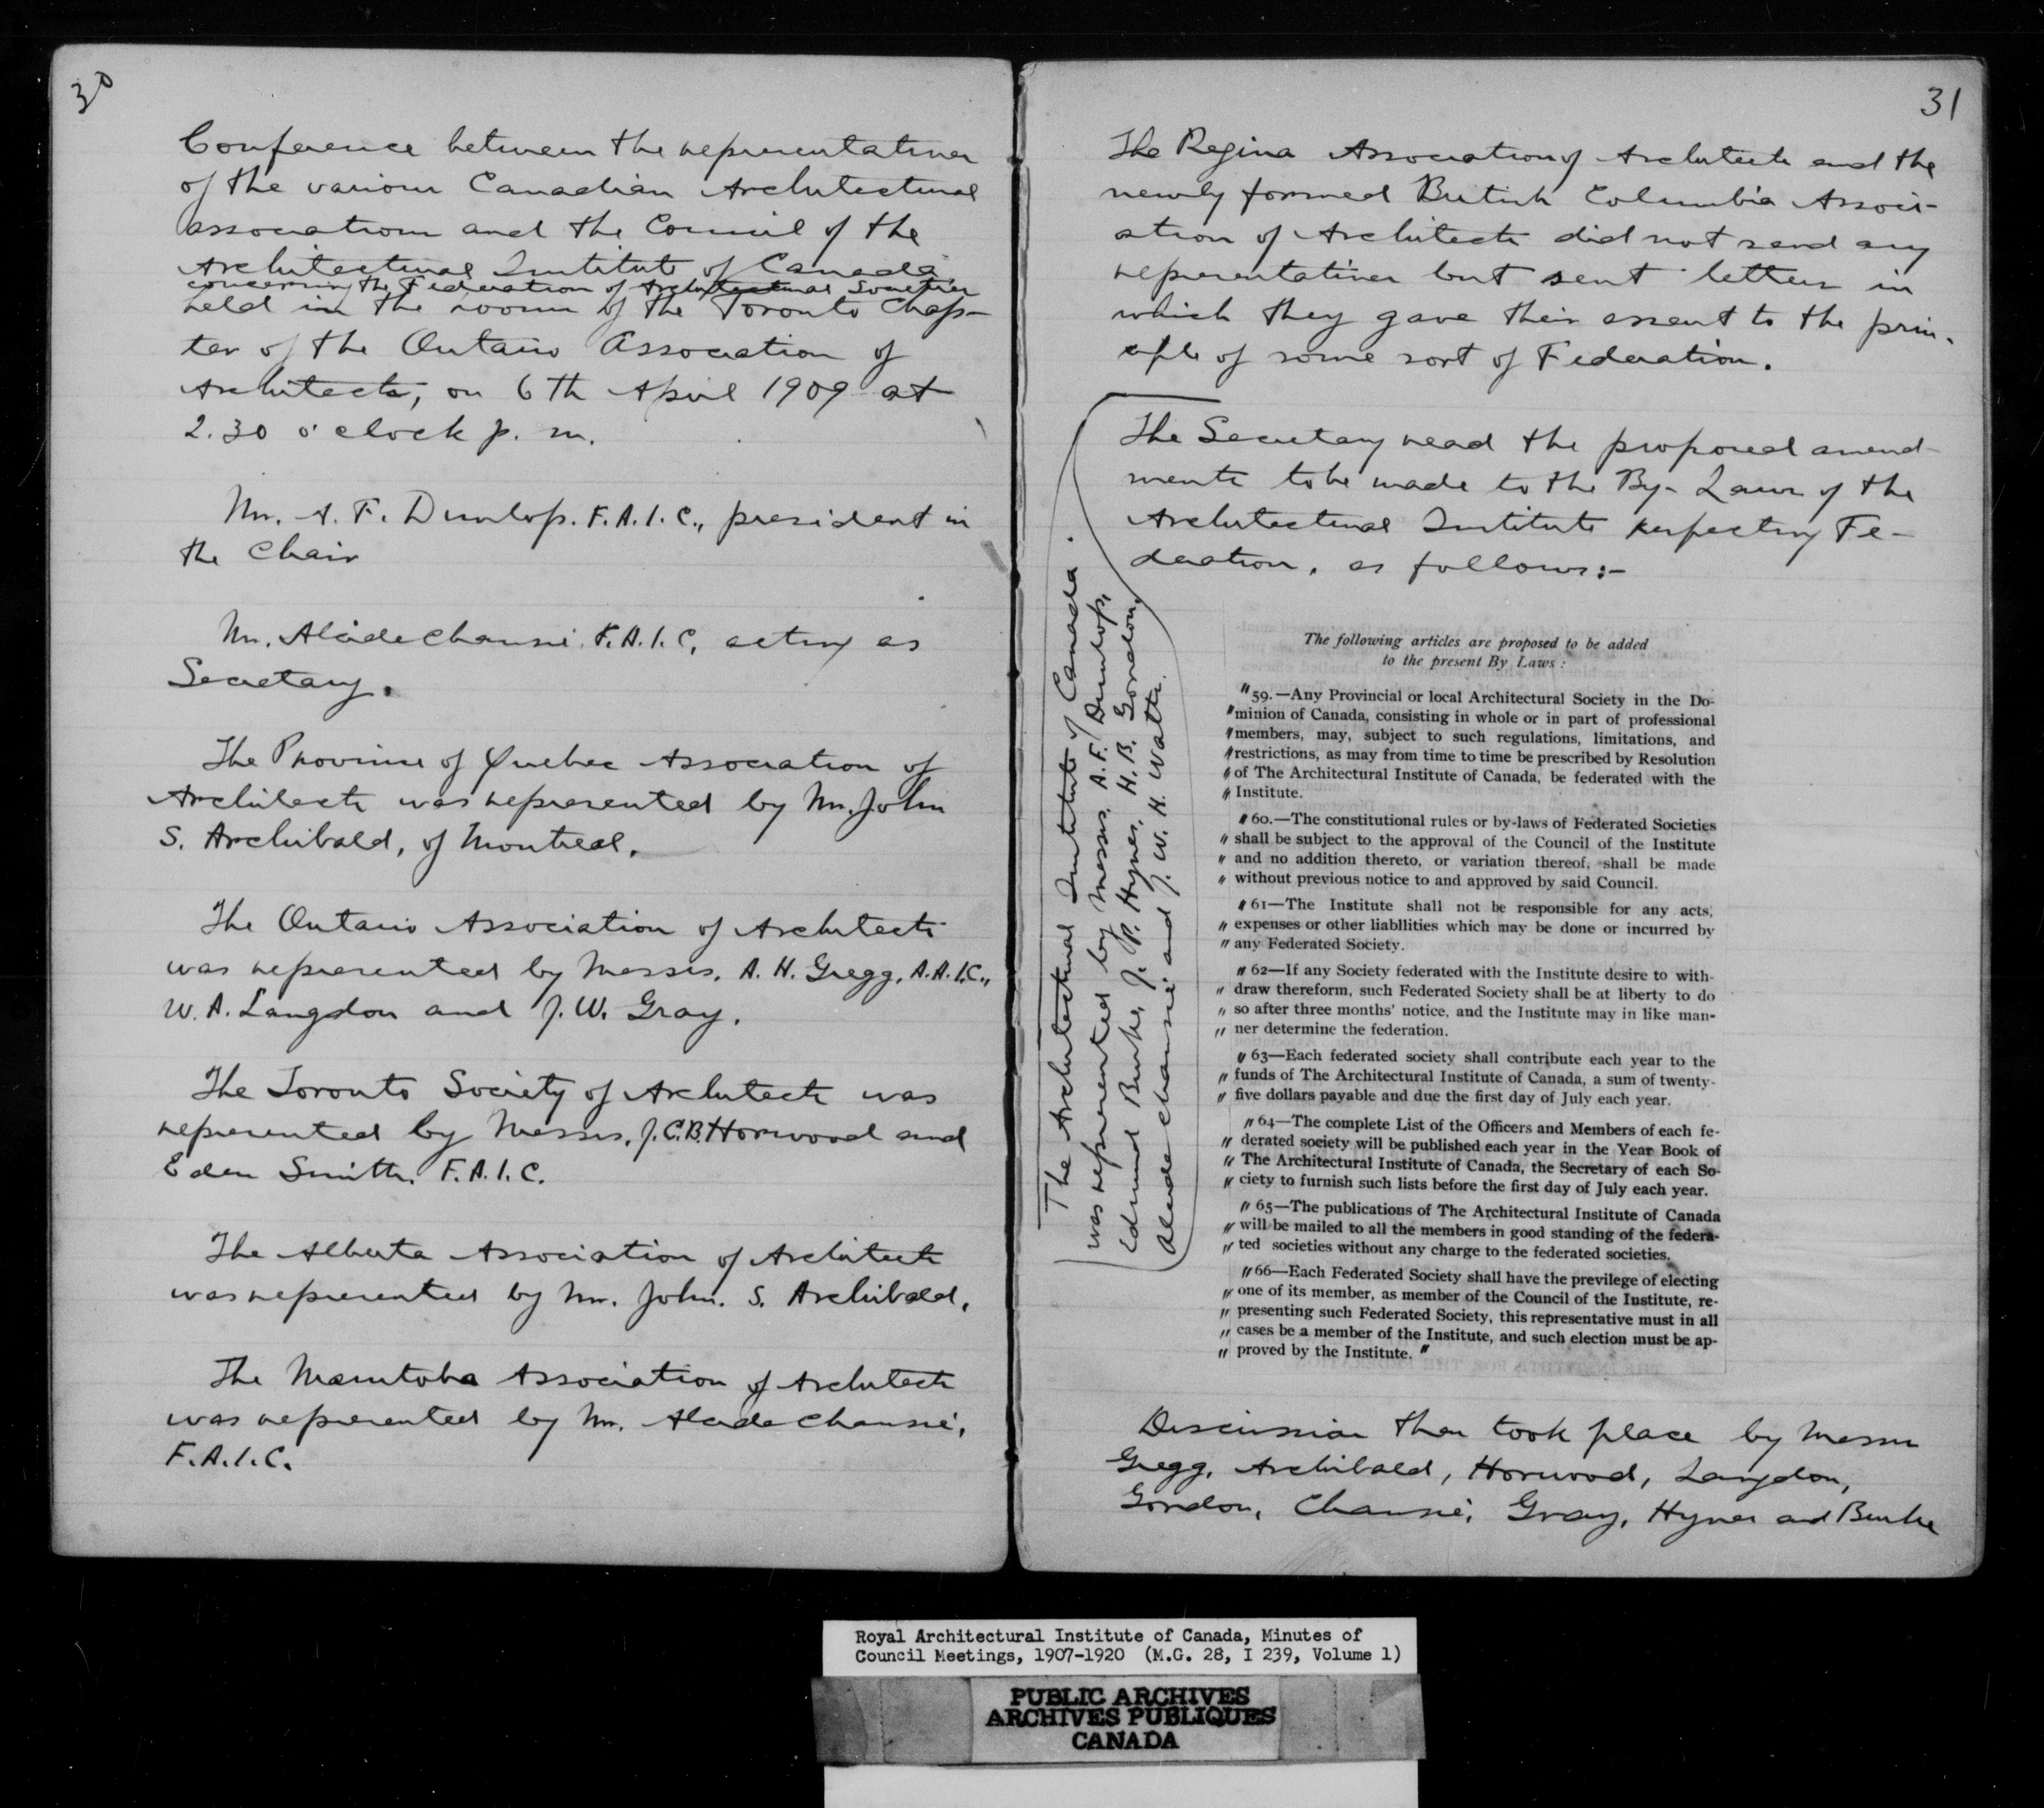 30
Conference between the representatives
of the various Canadian Architectural
associations and the Council of the
Architectural Institute of Canada,
concerning the Federation of Architectural Societies
held in the rooms of the Toronto Chap-
ter of the Ontario Association of
Architects, on 6th April 1909 at
2.30 o'clock p. m.
Mr. A. F. Dunlop. F.A.I.C., president in
the Chair
Mr. Alcide Chaussé. F.A.I.C, acting as
Secretary.
The Province of Quebec Association of
Architects was represented by Mr. John
S. Archibald, of Montreal.
The Ontario Association of Architects
was represented by Messrs. A. H. Gregg, A.A.I.C.,
W. A. Langdon and J. W. Gray.
The Toronto Society of Architects was
represented by Messrs. J.C.B. Horwood and
Eden Smith. F.A.I.C.
The Alberta Association of Architects
was represented by Mr. John. S. Archibald,
The Manitoba Association of Architects
was represented by Mr. Alcide Chaussé,
F.A.I.C.
31
The Regina Association of Architects and the
newly formed British Columbia Associ-
ation of Architects did not send any
representatives but sent letters in
which they gave their assent to the prin-
ciple of some sort of Federation.
The Architectural Institute of Canada.
was represented by Messrs. A. F. Dunlop,
Edmund Burke, J. P. Hynes, H. B. Gordon,
Alcide Chaussé and J. W. H. Watts.
The Secretary read the proposed amend-
ments to be made to the By-Laws of the
Architectural Institute perfecting Fe-
deration, as follows:-
The following articles are proposed to be added
to the present By Laws :
" 59.—Any Provincial or local Architectural Society in the Do-
" minion of Canada, consisting in whole or in part of professional
" members, may, subject to such regulations, limitations, and
" restrictions, as may from time to time be prescribed by Resolution
" of The Architectural Institute of Canada, be federated with the
" Institute.
" 60.—The constitutional rules or by-laws of Federated Societies
" shall be subject to the approval of the Council of the Institute
" and no addition thereto, or variation thereof, shall be made
" without previous notice to and approved by said Council.
" 61—The Institute shall not be responsible for any acts,
" expenses or other liabllities which may be done or incurred by
" any Federated Society.
" 62—If any Society federated with the Institute desire to with-
" draw thereform, such Federated Society shall be at liberty to do
" so after three months' notice, and the Institute may in like man-
" ner determine the federation.
" 63—Each federated society shall contribute each year to the
" funds of The Architectural Institute of Canada, a sum of twenty-
" five dollars payable and due the first day of July each year.
" 64—The complete List of the Officers and Members of each fe-
" derated society will be published each year in the Year Book of
" The Architectural Institute of Canada, the Secretary of each So-
" ciety to furnish such lists before the first day of July each year.
" 65—The publications of The Architectural Institute of Canada
" will be mailed to all the members in good standing of the federa-
" ted societies without any charge to the federated societies.
" 66—Each Federated Society shall have the previlege of electing
" one of its member, as member of the Council of the Institute, re-
" presenting such Federated Society, this representative must in all
" cases be a member of the Institute, and such election must be ap-
" proved by the Institute. "
Discussion then took place by Messrs
Gregg, Archibald, Horwood, Langdon,
Gordon, Chaussé, Gray, Hynes and Burke
Royal Architectural Institute of Canada, Minutes of
Council Meetings, 1907-1920 (M.G. 28, I 239, Volume 1)
PUBLIC ARCHIVES
ARCHIVES PUBLIQUES
CANADA